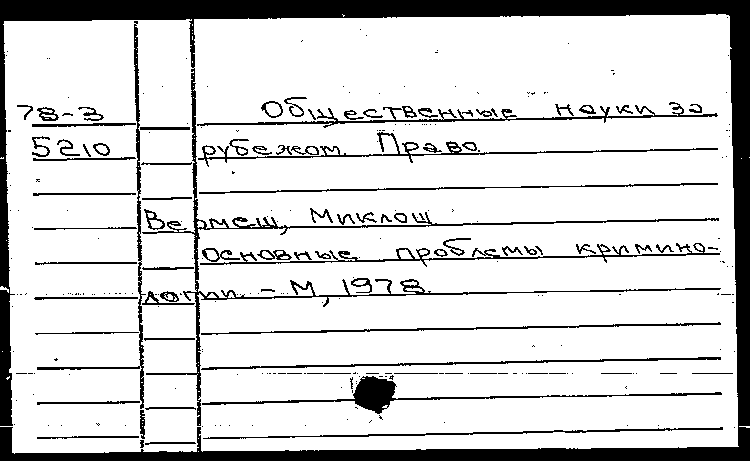 78-3 Общественные науки за
5210 рубежом. Право
Вермеш, Миклош
Основные проблемы кримино-
логии. - М, 1978.